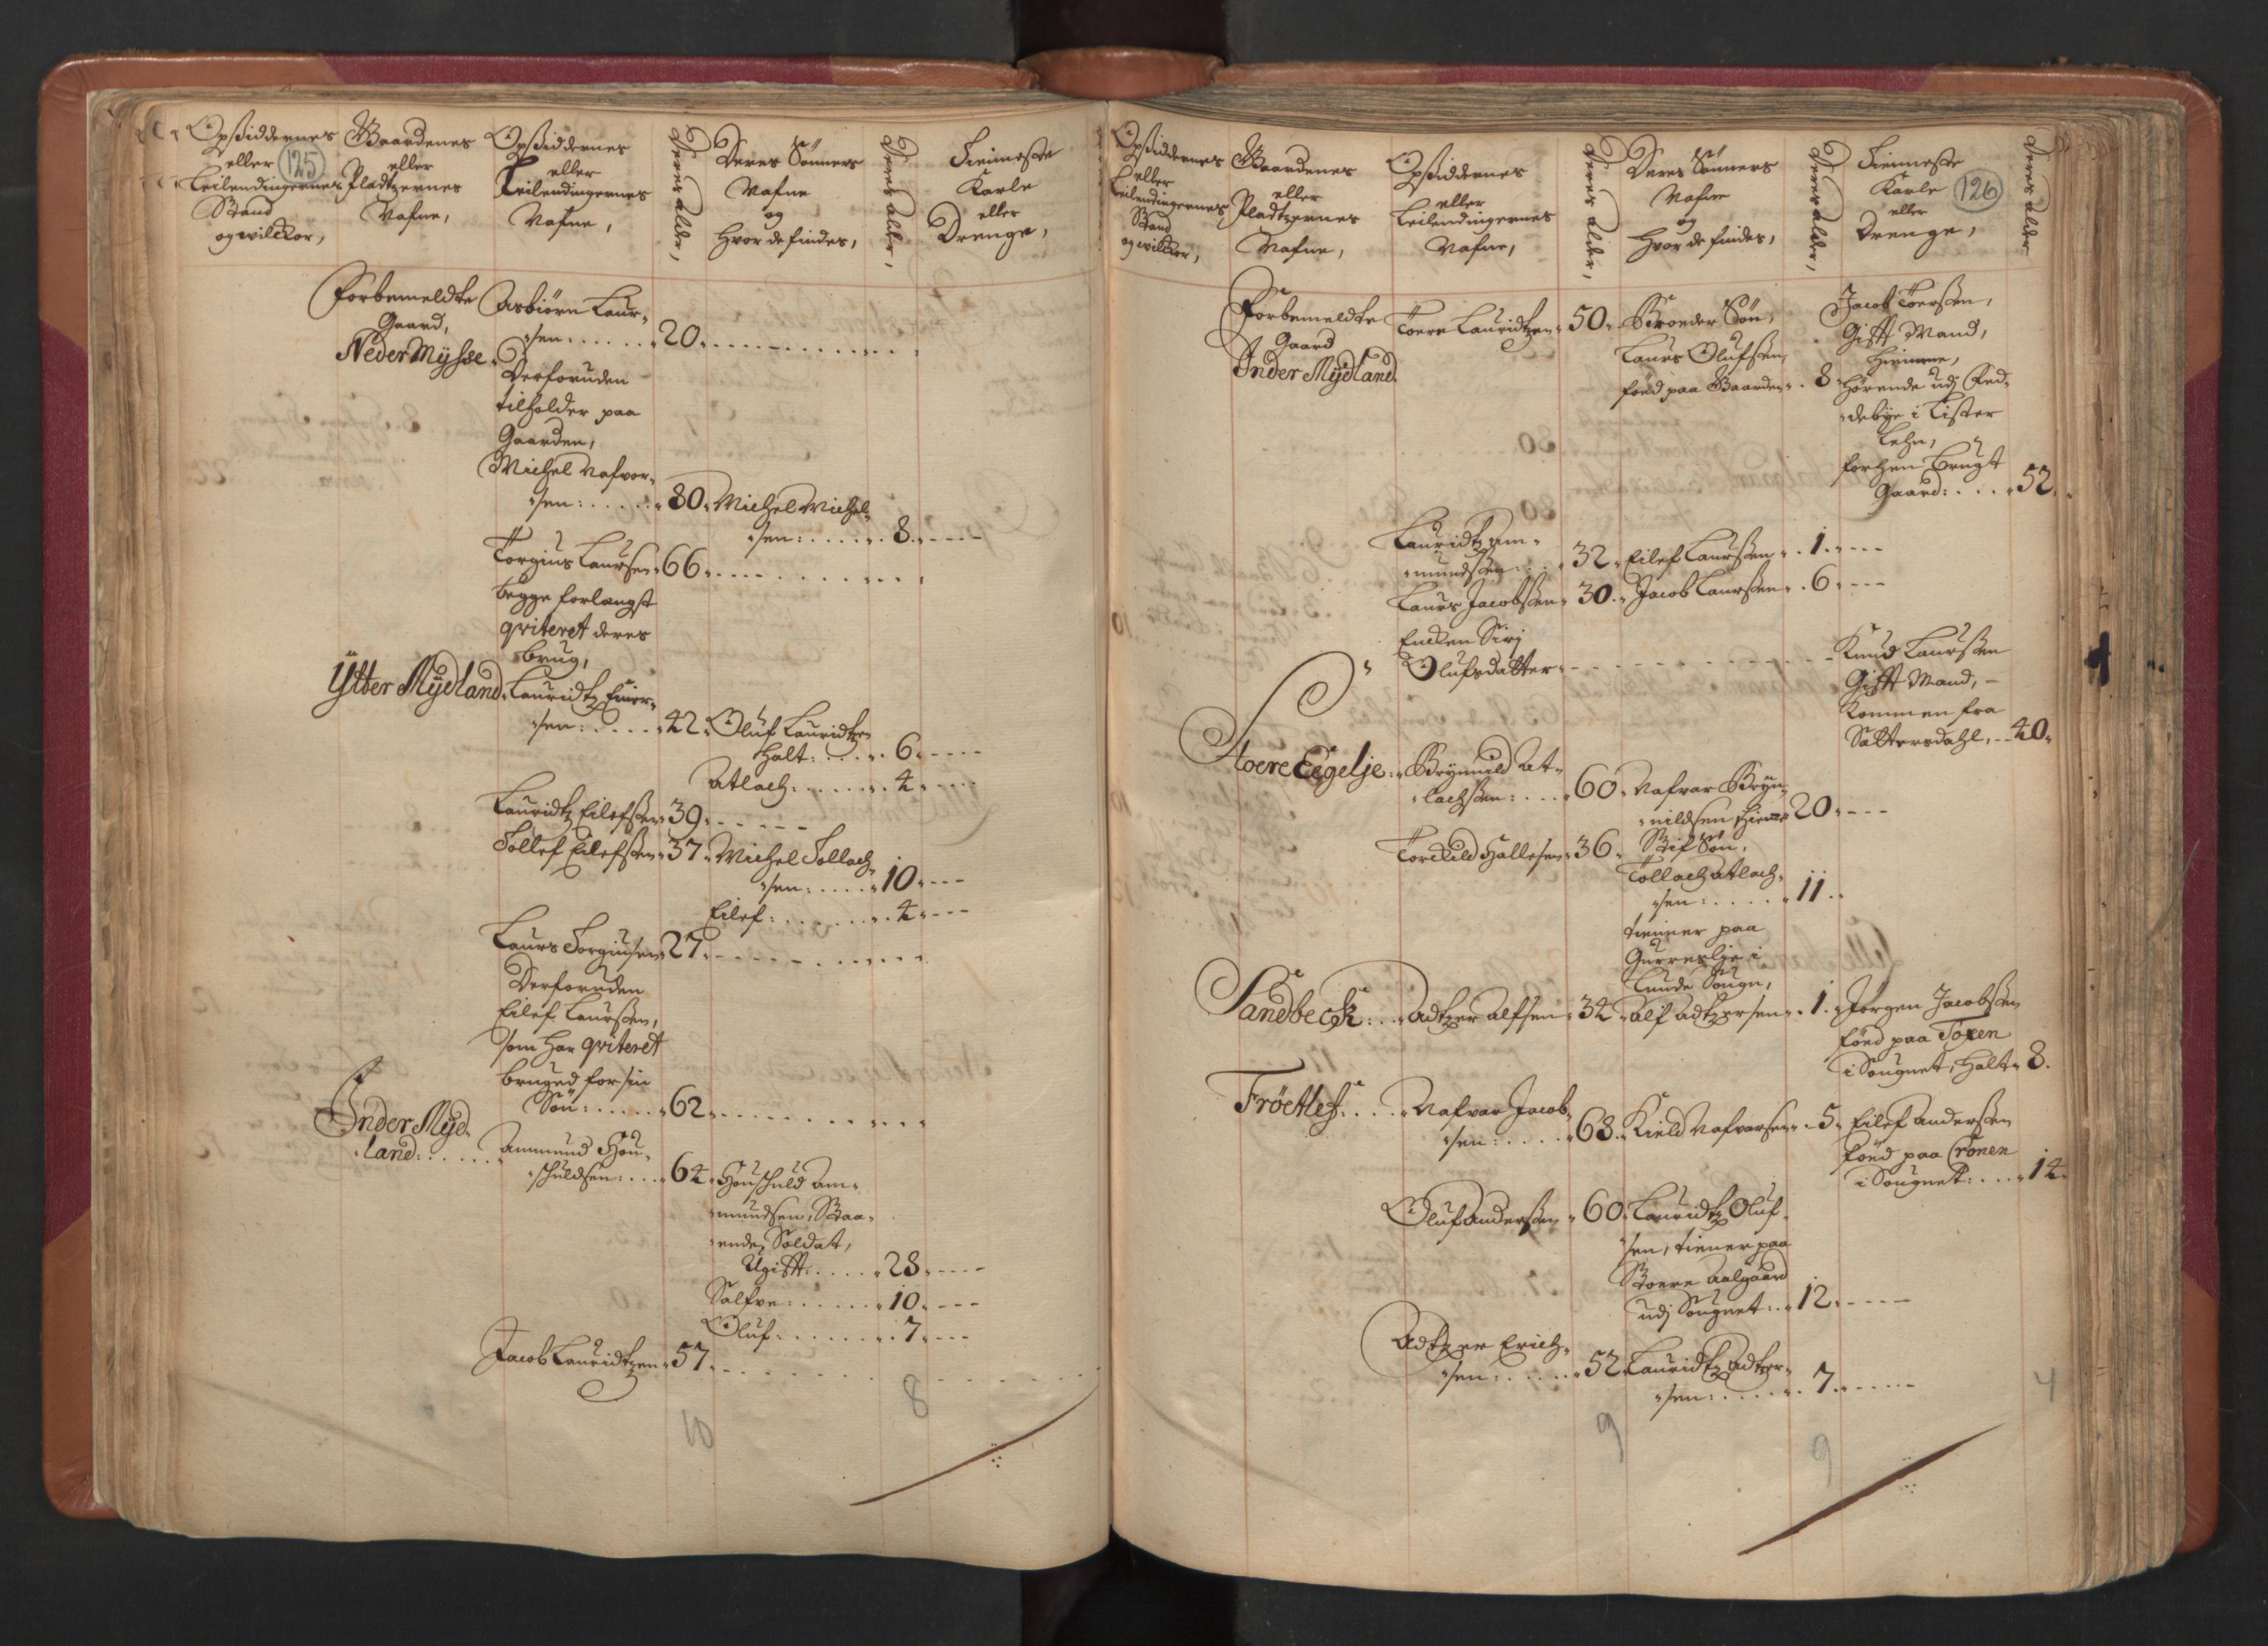 Opsiddernes
eller
Leilendingernes
Stand
og wilckor,
125
Gaardenes
eller
Pladtzernes
Nafne,
Opsiddernes
eller
Leilendingernes
Nafne,
Deres alder,
Deres Sönners
Nafne
og
Hvor de findes,
Deres alder,
Tieniste
Karle
eller
Drenge,
Forbemeldte
Gaard,
Neder Mysse
Asbiörn Laur-
sen: 20.
Derforuden
tilholder paa
Gaarden,
Michel Nafvor-
sen: 80. Michel Michel-
sen: 8.
Torgius Laursen 66.
begge forlangst
qviteret deres
brug,
Ytter Mydland. Lauridtz Einer-
sen: 42. Oluf Lauridtzen
Halt: 6.
Atlach: 4.
Lauridtz Eilefsen 39.
Tollef Eilefsen 37. Michel Tollach-
sen: 10.
Eilef: 4.
Laurs Torgiusen 27.
Derforuden
Eilef Laursen,
som har qviteret
bruged for sin
Sön: 62.
Inder Myd-
land:
Ammund Hou-
schuldsen: 64. Houschuld Am-
mundsen, Staa-
ende Soldat,
Ugift: 28.
Salfve: 10.
Oluf: 7.
Jacob Lauridtzen 57.
10
8
Opsiddernes
eller
Leilendingernes
Stand
og wilckor,
Gaardenes
eller
Pladtzernes
Nafne,
Opsiddernes
eller
Leilendingernes
Nafne,
Deres alder,
Deres Sönners
Nafne
og
Hvor de findes,
Deres alder,
Tieniste
Karle
eller
Drenge,
126
Deres alder
Forbemeldte
Gaard
Inder Mydland
Toere Lauridtzen 50. Broeder Sön,
Laurs Olufsen,
föed paa Gaarden 8.
Jacob Toersen,
Gift Mand,
hörende udj Fed-
debye i Lister
Lehn,
forhen brugt
Gaard: 52.
Lauridtz Am-
mundsen: 32. Eilef Laursen 1.
Laurs Jacobsen 30. Jacob Laursen 6.
Encken Sirj
Olufsdatter
Knud Laursen
Gift Mand,
kommen fra
Sættersdahl, 40.
Stoere Eegelje: Brynnild At-
lachsen: 60. Nafvar Bryn-
nildsen hiemme 20.
Torckild Hallesen 36. Stif Sön,
Tollach Atlach-
sen: 11.
tienner paa
Gurreslje i
Lunde Sougn,
Sandbeck: Adtzer Alfsen 34. Alf Adtzersen 1. Jörgen Jacobsen
föed paa Toxen
i Sougnet, Halt 8.
Fröetlef: Nafvar Jacob-
sen: 68. Kield Nafvarsen 5. Eilef Andersen
föed paa Cronen
i Sougnet: 14.
Oluf Andersen 60. Lauridtz Oluf-
sen, tiener paa
Stoere Aalgaard
udj Sougnet: 12.
Adtzer Erich-
sen: 52. Lauridtz Adtzer-
sen: 7.
9
9
4